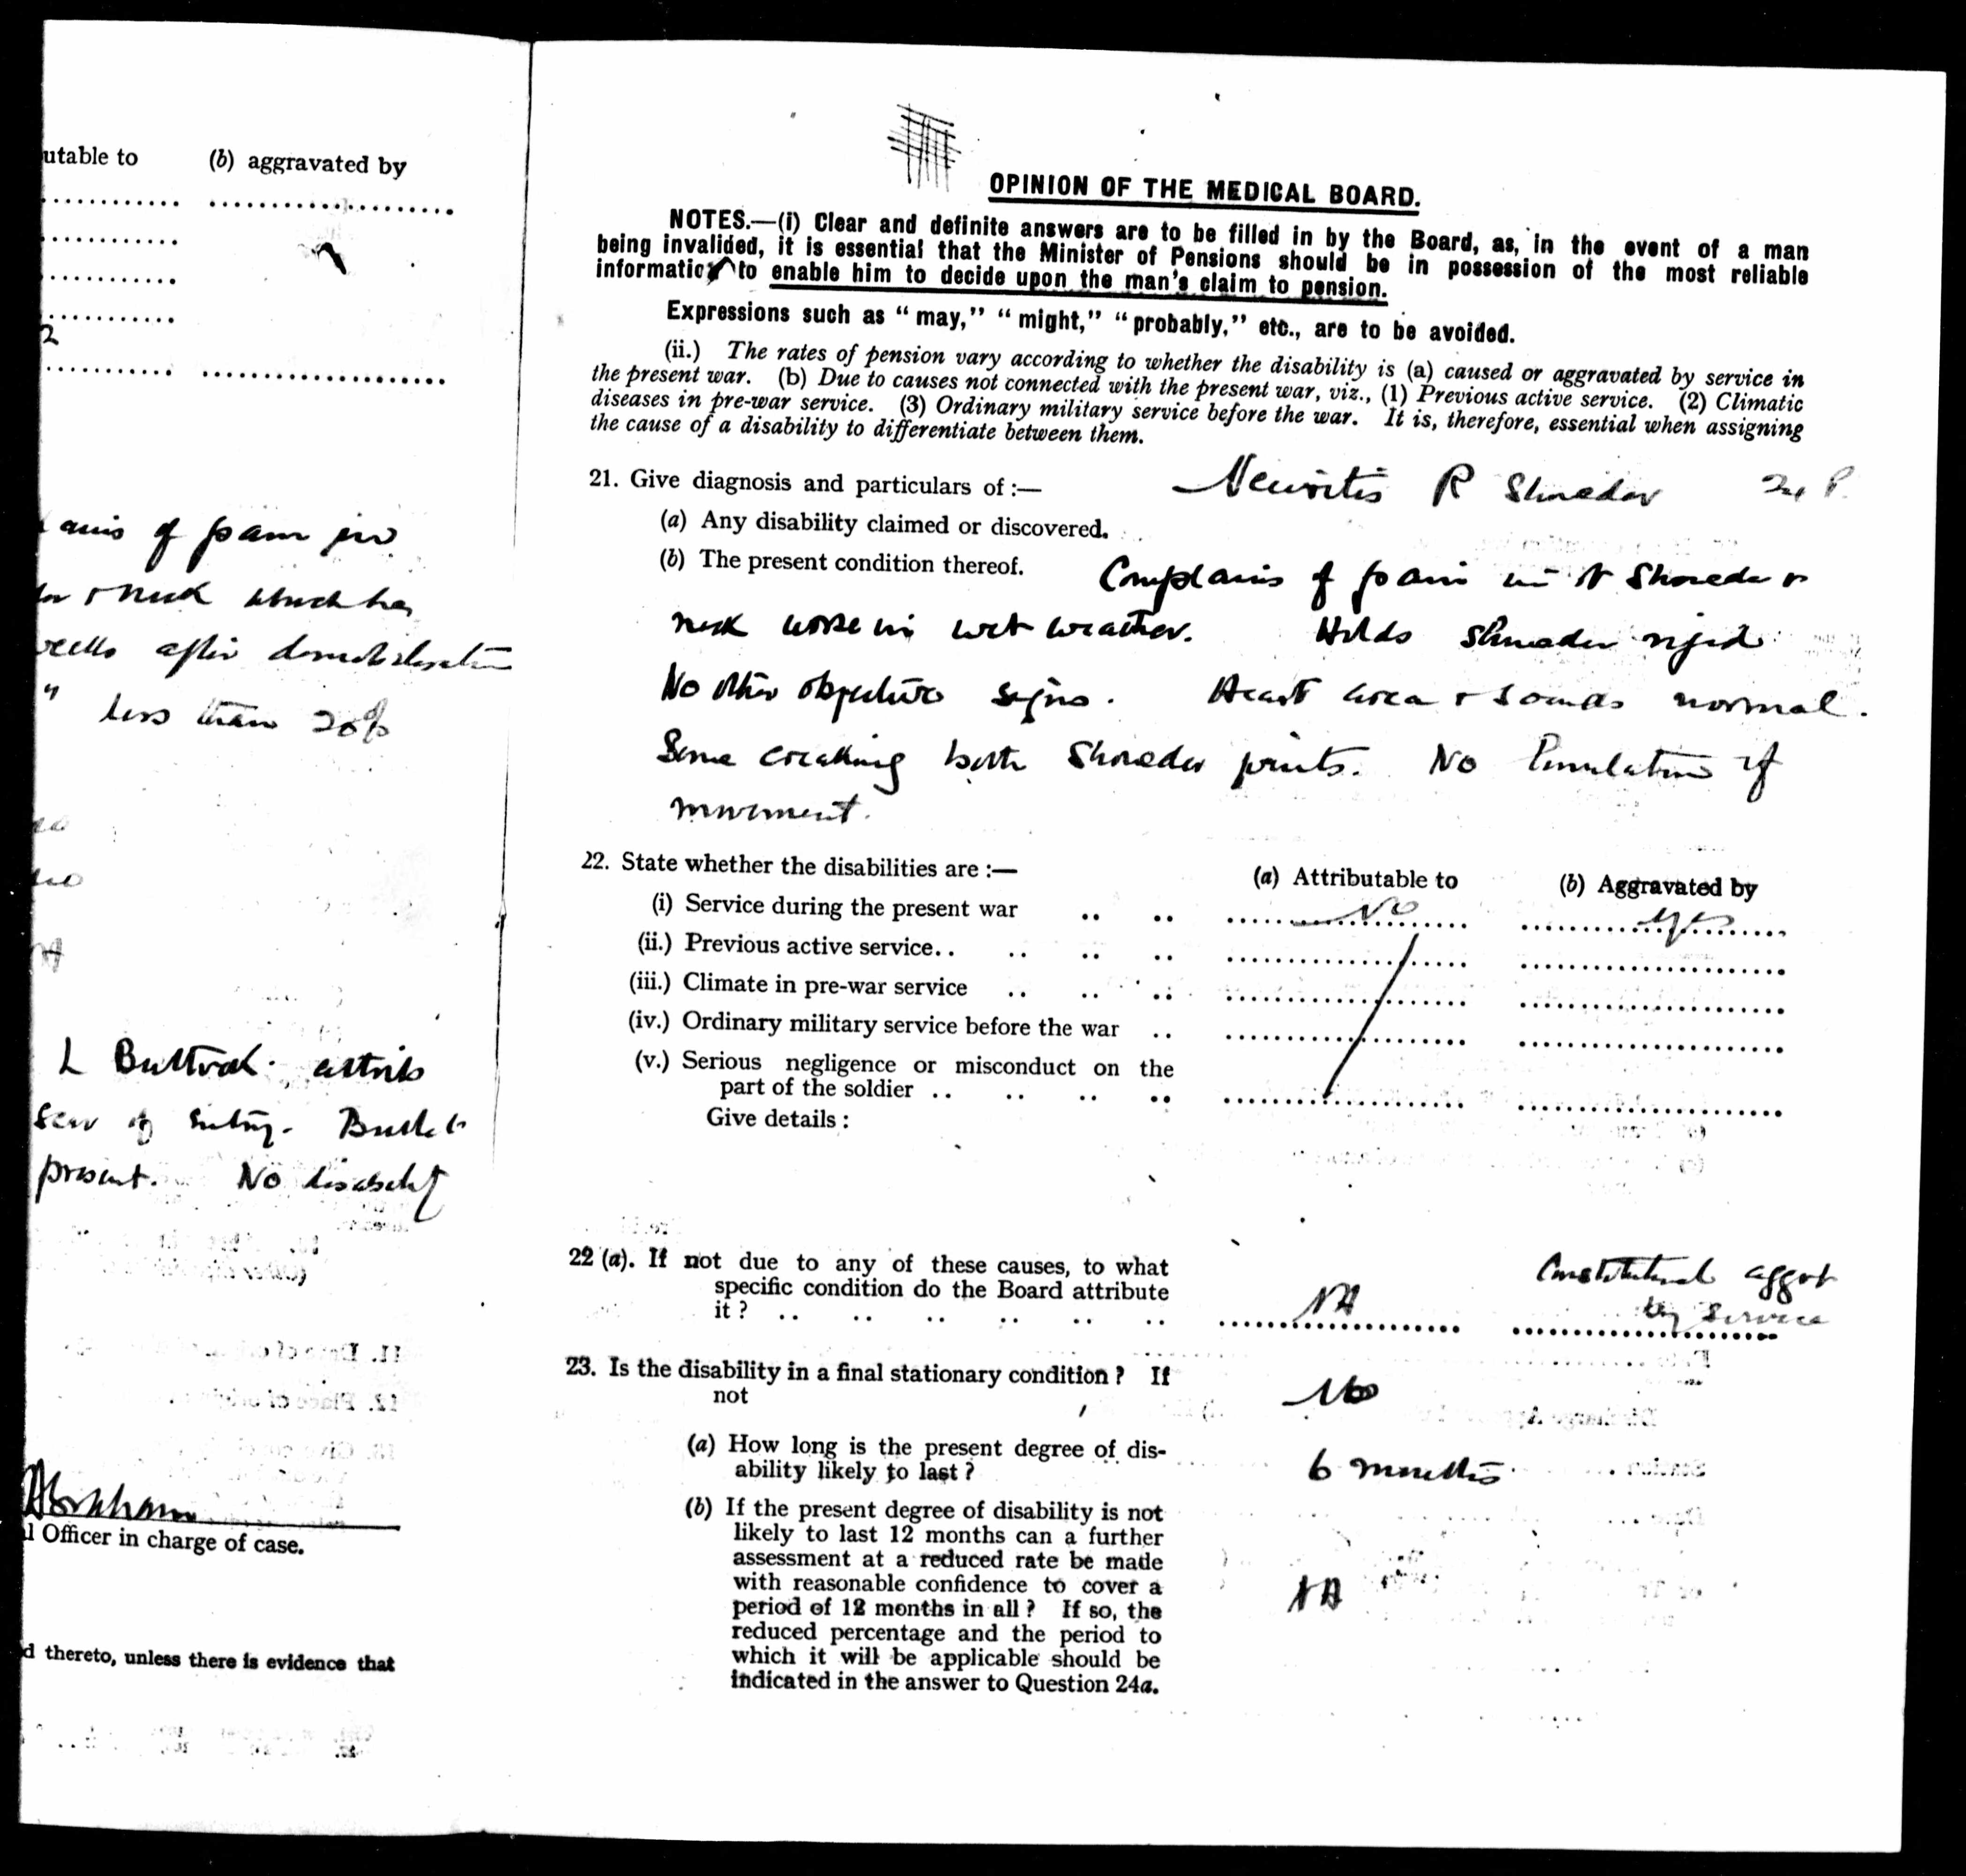 utable to (b) aggravated by
ains of pain in
& neck which has
weeks after demobilisation
" less than 20%
L Buttock.
scar of entry. Bullet
present. No disability
Abraham
l Officer in charge of case.
d thereto, unless there is evidence that
OPINION OF THE MEDICAL BOARD.
NOTES.—(i) Clear and definite answers are to be filled in by the Board, as, in the event of a man
being invalided, it is essential that the Minister of Pensions should be in possession of the most reliable
informatio to enable him to decide upon the man's claim to pension.
Expressions such as "may," "might," "probably," etc., are to be avoided.
(ii.) The rates of pension vary according to whether the disability is (a) caused or aggravated by service in
the present war. (b) Due to causes not connected with the present war, viz., (1) Previous active service. (2) Climatic
diseases in pre-war service. (3) Ordinary military service before the war. It is, therefore, essential when assigning
the cause of a disability to differentiate between them.
21. Give diagnosis and particulars of :— Neuritis R Shoulder
(a) Any disability claimed or discovered.
(b) The present condition thereof. Complains of pain in R Shoulder &
neck worse in wet weather. Holds shoulder rigid
No other objective signs. Heart area & sounds normal.
Some creaking both Shoulder joints. No limitation of
movement.
22. State whether the disabilities are :— (a) Attributable to (b) Aggravated by
(i) Service during the present war .. .. No yes
(ii.) Previous active service.. .. .. ..
(iii.) Climate in pre-war service .. .. ..
(iv.) Ordinary military service before the war ..
(v.) Serious negligence or misconduct on the
part of the soldier .. .. .. ..
Give details :
22 (a). If not due to any of these causes, to what Constitutional aggvt
specific condition do the Board attribute NA by service
it ? .. .. .. .. .. ..
23. Is the disability in a final stationary condition ? If No
not
(a) How long is the present degree of dis- 6 months
ability likely to last ?
(b) If the present degree of disability is not
likely to last 12 months can a further
assessment at a reduced rate be made
with reasonable confidence to cover a NA
period of 12 months in all ? If so, the
reduced percentage and the period to
which it will be applicable should be
indicated in the answer to Question 24a.